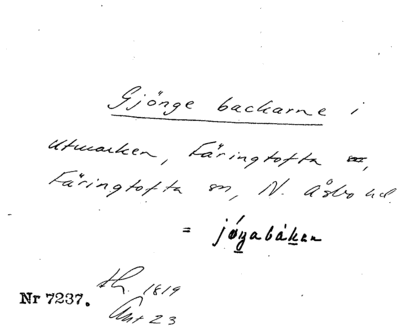 Gjönge backarne i
utmarken, Färingtofta
Färingtofta sn, N. Åsbo hd.
= jøyabáken
Nr 7237.
1819
Ant 23